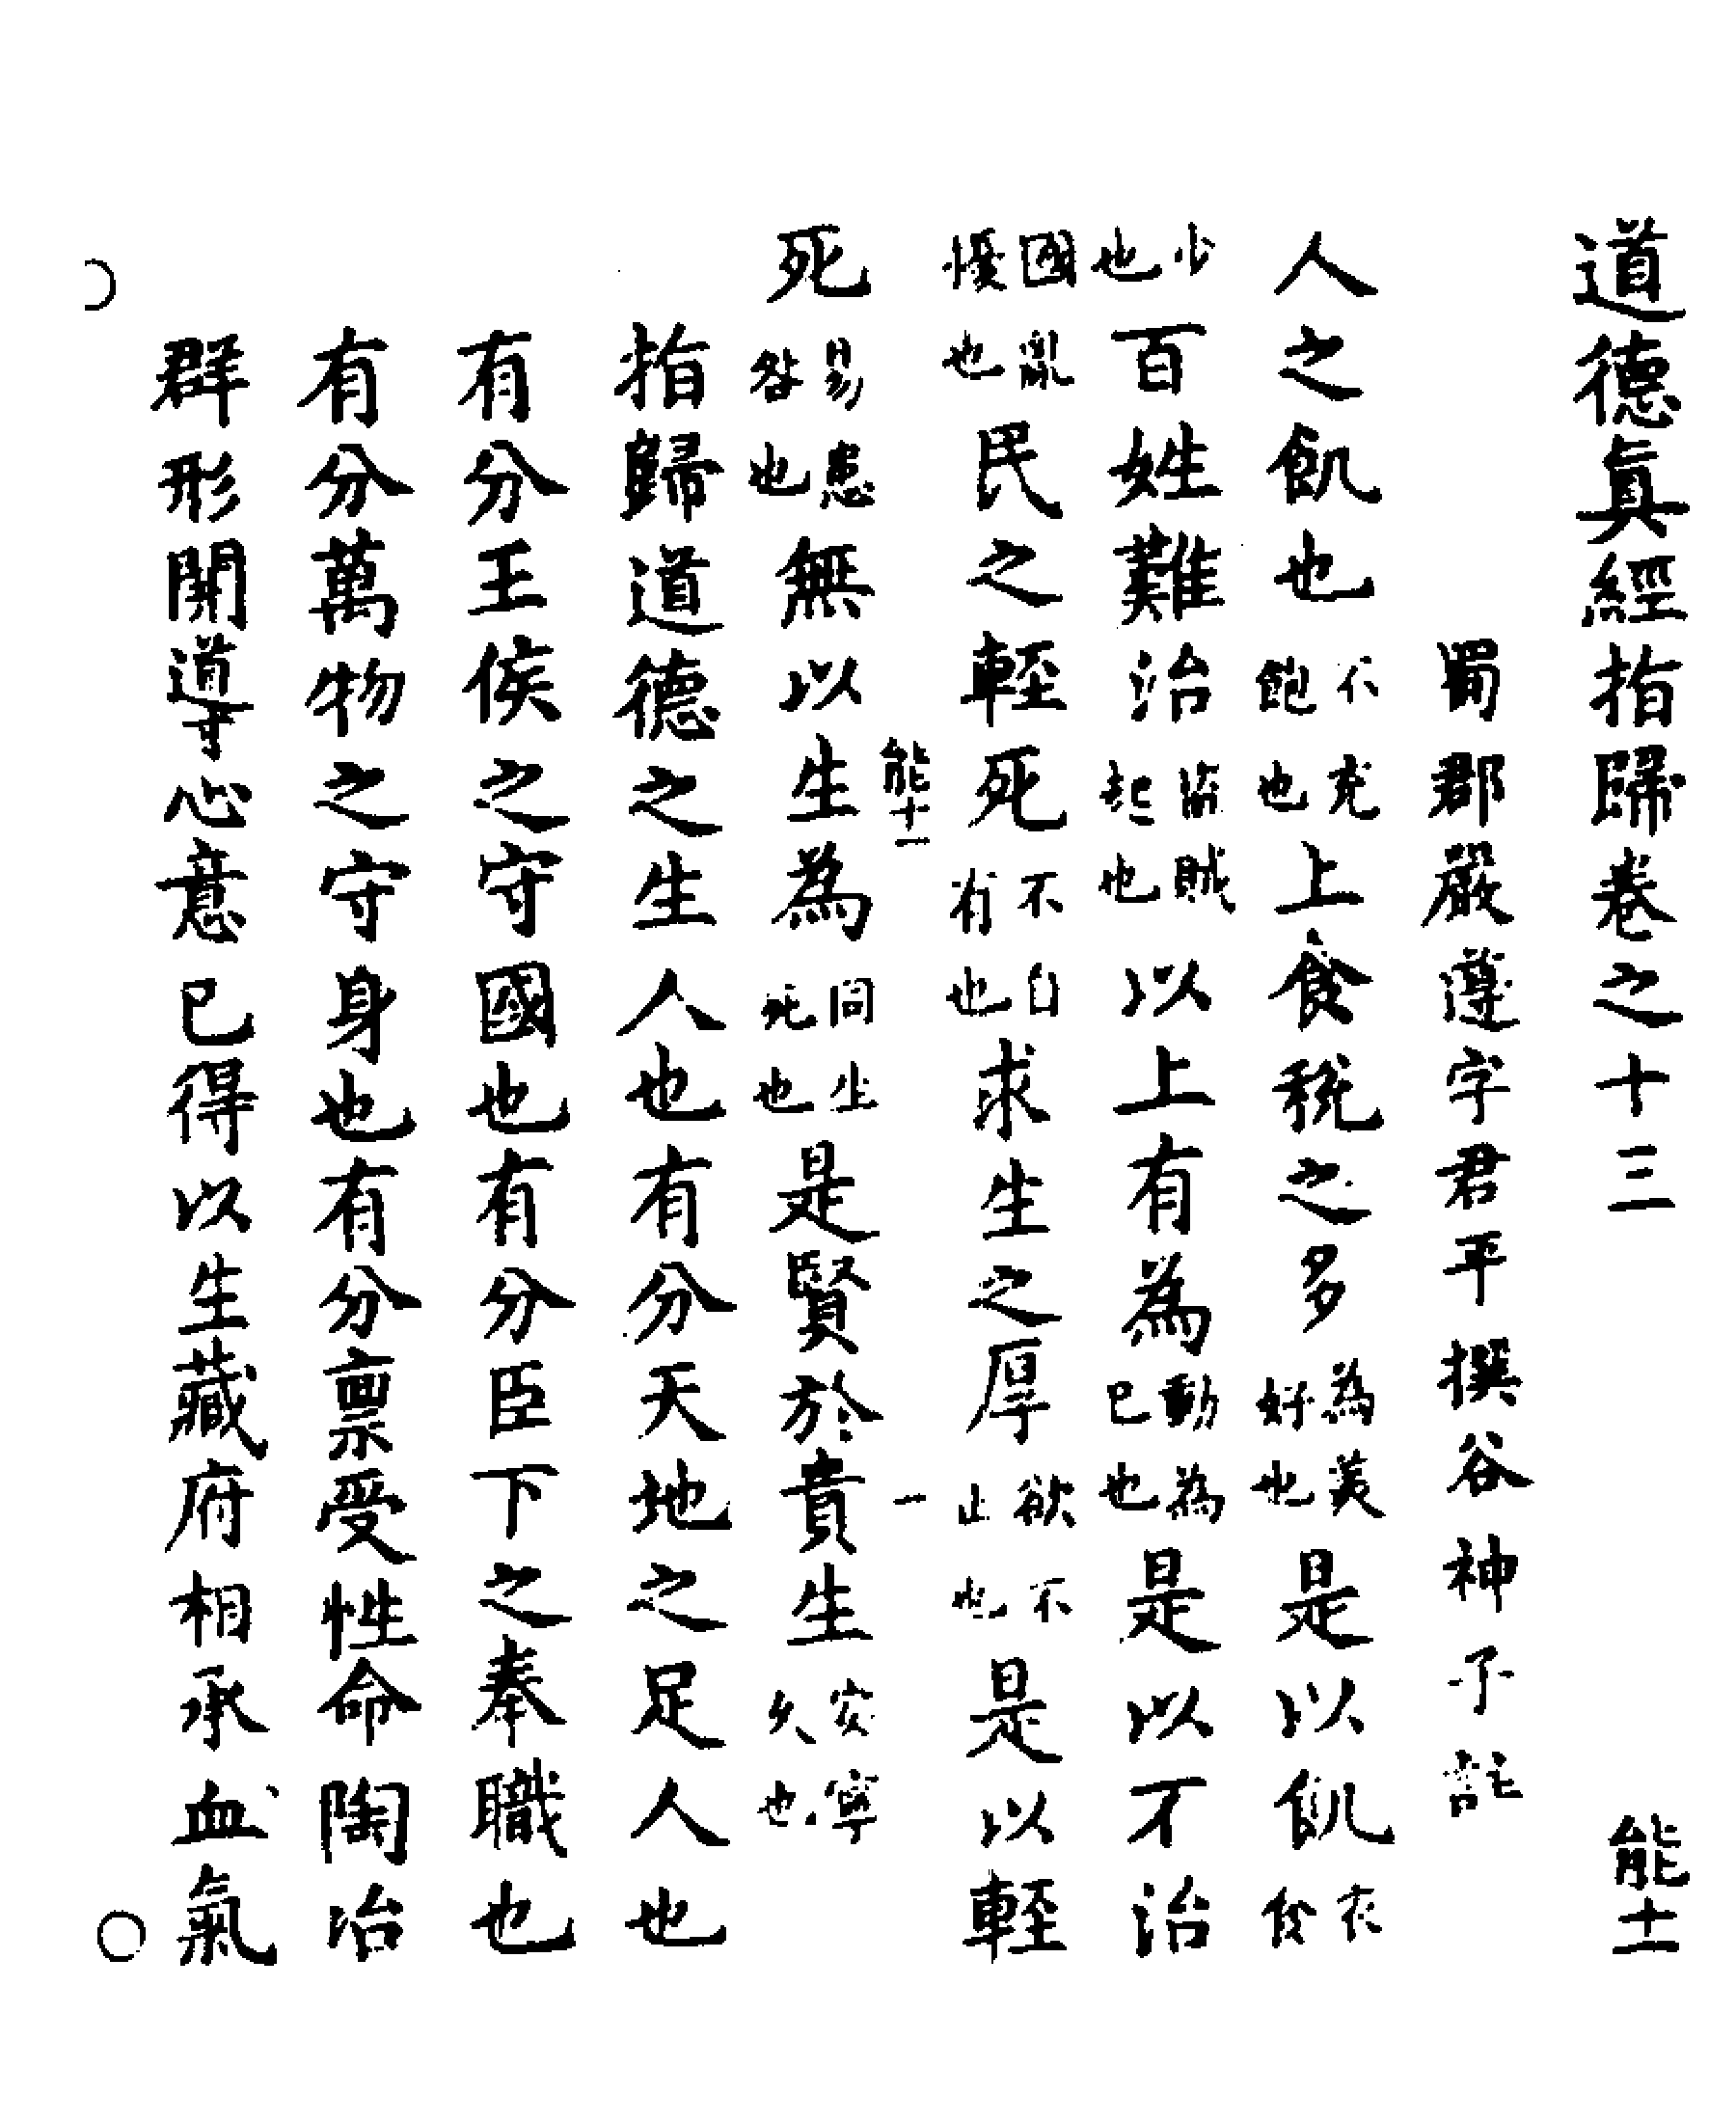 道德眞經指歸卷之十三 能十一
蜀郡嚴遵字君平撰谷神子註
人之飢也不充飽也上食稅之多為美好也是以飢衣食
少也百姓難治盜賊起也以上有為動為已也是以不治
國亂擾也民之輕死不自有也求生之厚欲不止也是以輕
能十一 一
死易患咎也無以生為同生死也是賢於貴生安寧久也
指歸道德之生人也有分天地之足人也
有分王侯之守國也有分臣下之奉職也
有分萬物之守身也有分稟受性命陶冶
群形開導心意已得以生藏府相承血氣